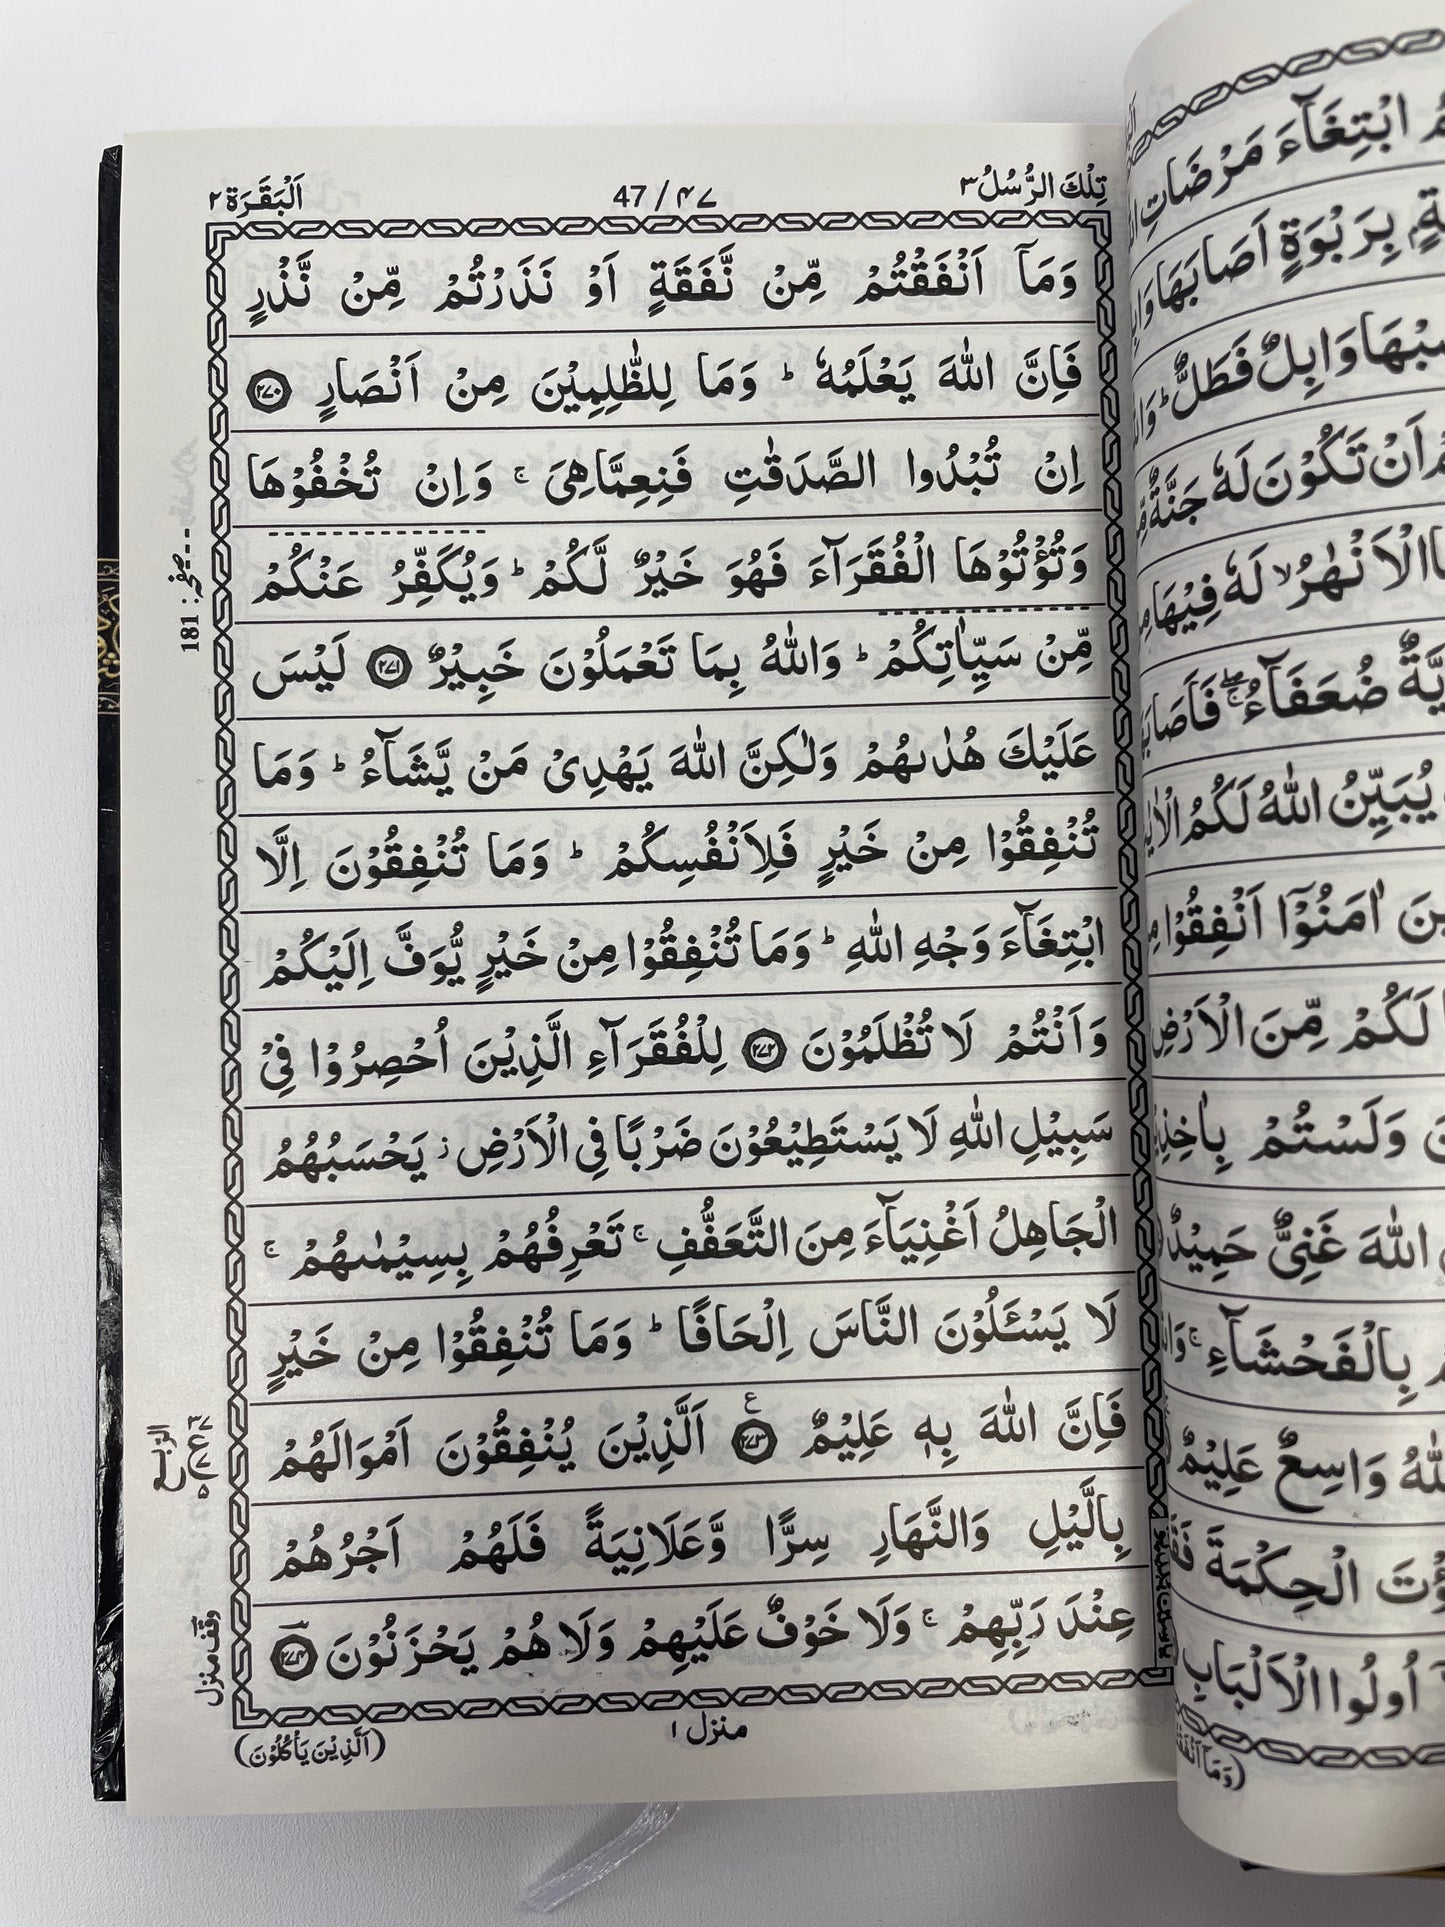 تِلْكَ الرُّسُلُ ٣
47 / ۴۷
اَلْبَقَرَة ٢
وَمَاۤ اَنْفَقْتُمْ مِّنْ نَّفَقَةٍ اَوْ نَذَرْتُمْ مِّنْ نَّذْرٍ
فَاِنَّ اللّٰهَ يَعْلَمُهٗ ؕ وَمَا لِلظّٰلِمِيْنَ مِنْ اَنْصَارٍ ۲۷۰
اِنْ تُبْدُوا الصَّدَقٰتِ فَنِعِمَّاهِىَ ۚ وَاِنْ تُخْفُوْهَا
وَتُؤْتُوْهَا الْفُقَرَآءَ فَهُوَ خَيْرٌ لَّكُمْ ؕ وَيُكَفِّرُ عَنْكُمْ
مِّنْ سَيِّاٰتِكُمْ ؕ وَاللّٰهُ بِمَا تَعْمَلُوْنَ خَبِيْرٌ ۲۷۱ لَيْسَ
عَلَيْكَ هُدٰىهُمْ وَلٰكِنَّ اللّٰهَ يَهْدِىْ مَنْ يَّشَآءُ ؕ وَمَا
تُنْفِقُوْا مِنْ خَيْرٍ فَلِاَنْفُسِكُمْ ؕ وَمَا تُنْفِقُوْنَ اِلَّا
ابْتِغَآءَ وَجْهِ اللّٰهِ ؕ وَمَا تُنْفِقُوْا مِنْ خَيْرٍ يُّوَفَّ اِلَيْكُمْ
وَاَنْتُمْ لَا تُظْلَمُوْنَ ۲۷۲ لِلْفُقَرَآءِ الَّذِيْنَ اُحْصِرُوْا فِىْ
سَبِيْلِ اللّٰهِ لَا يَسْتَطِيْعُوْنَ ضَرْبًا فِى الْاَرْضِ ز يَحْسَبُهُمُ
الْجَاهِلُ اَغْنِيَآءَ مِنَ التَّعَفُّفِ ۚ تَعْرِفُهُمْ بِسِيْمٰىهُمْ ۚ
لَا يَسْـَٔلُوْنَ النَّاسَ اِلْحَافًا ؕ وَمَا تُنْفِقُوْا مِنْ خَيْرٍ
فَاِنَّ اللّٰهَ بِهٖ عَلِيْمٌ ۲۷۳ ع اَلَّذِيْنَ يُنْفِقُوْنَ اَمْوَالَهُمْ
بِالَّيْلِ وَالنَّهَارِ سِرًّا وَّعَلَانِيَةً فَلَهُمْ اَجْرُهُمْ
عِنْدَ رَبِّهِمْ ۚ وَلَا خَوْفٌ عَلَيْهِمْ وَلَا هُمْ يَحْزَنُوْنَ ۲۷۴
منزل ١
(اَلَّذِيْنَ يَاْكُلُوْنَ)
صفحہ: 181
وقف منزل
ابْتِغَآءَ مَرْضَاتِ
بِرَبْوَةٍ اَصَابَهَا
وَابِلٌ فَطَلٌّ ؕ
اَنْ تَكُوْنَ لَهٗ جَنَّةٌ
الْاَنْهٰرُ ۙ لَهٗ فِيْهَا
ضُعَفَآءُ
يُبَيِّنُ اللّٰهُ لَكُمُ
اٰمَنُوْۤا اَنْفِقُوْا
لَكُمْ مِّنَ الْاَرْضِ
وَلَسْتُمْ
اللّٰهَ غَنِىٌّ حَمِيْدٌ
بِالْفَحْشَآءِ ۚ
وَاسِعٌ عَلِيْمٌ
الْحِكْمَةَ
اُولُوا الْاَلْبَابِ